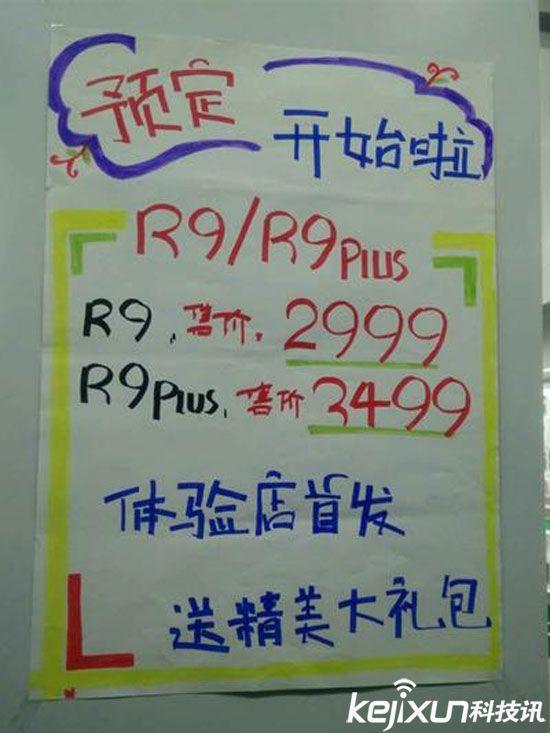 预定
开始啦
R9/R9Plus
R9、售价：2999
R9Plus、售价3499
体验店首发
送精美大礼包
kejixun科技讯